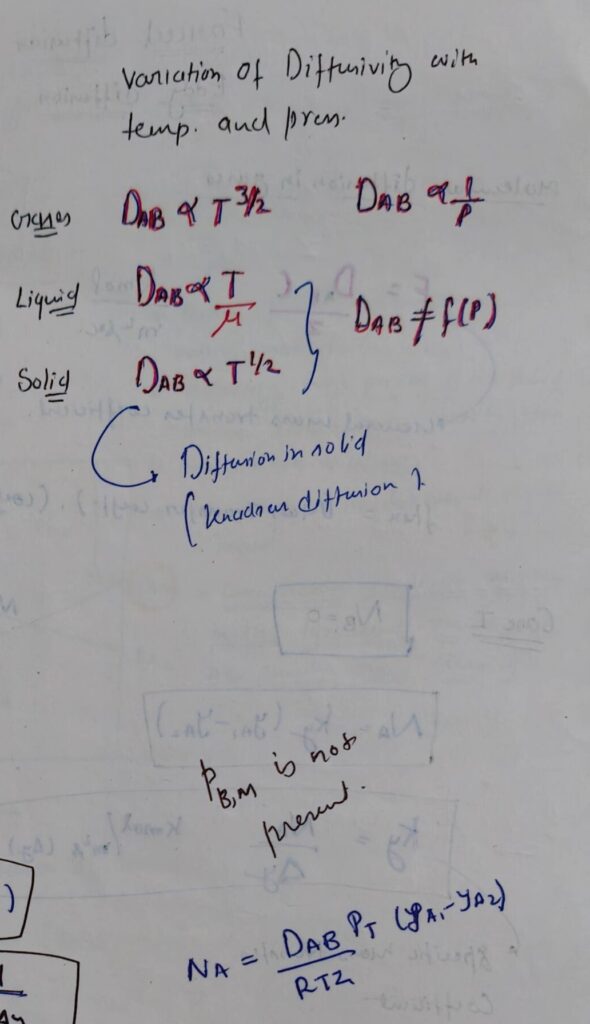 Variation of Diffusivity with
temp. and press.
Gases D_AB ∝ T^3/2 D_AB ∝ 1/P
Liquid D_AB ∝ T/μ } D_AB ≠ f(P)
Solid D_AB ∝ T^1/2
Diffusion in solid
(Knudsen diffusion)
P_B,M is not
present.
N_A = D_AB P_T (y_A1 - y_A2) / RTZ